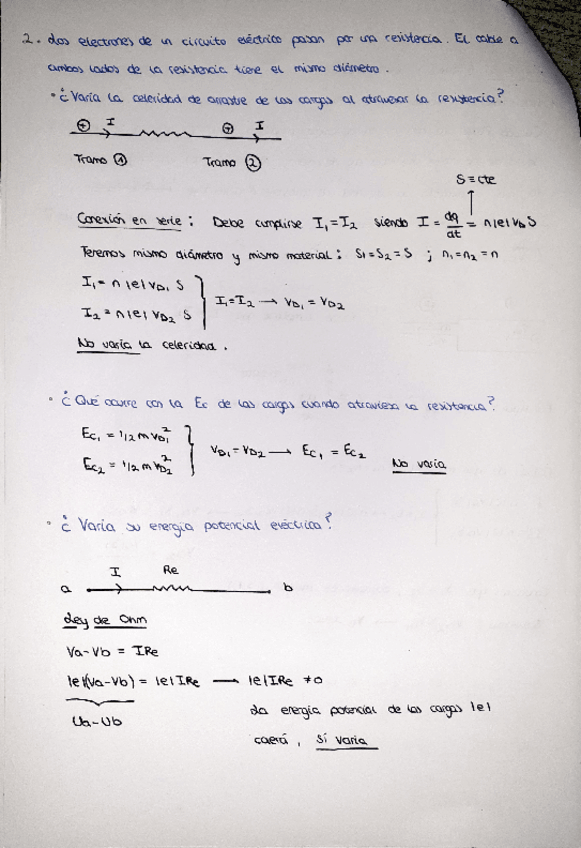 2. Los electrones de un circuito eléctrico pasan por una resistencia. El cable a
ambos lados de la resistencia tiene el mismo diámetro.
• ¿Varía la celeridad de arrastre de las cargas al atravesar la resistencia?
⊕ I ⊕ I
Tramo ① Tramo ②
S ≡ cte
Conexión en serie: Debe cumplirse I₁=I₂ siendo I = dq/dt = n|e|V_D S
Tenemos mismo diámetro y mismo material: S₁=S₂=S ; n₁=n₂=n
I₁= n|e|V_D₁ S
I₂= n|e|V_D₂ S
I₁=I₂ → V_D₁ = V_D₂
No varía la celeridad.
• ¿Qué ocurre con la Ec de las cargas cuando atraviesa la resistencia?
Ec₁ = 1/2 m V_D₁²
Ec₂ = 1/2 m V_D₂²
V_D₁=V_D₂ → Ec₁ = Ec₂
No varía
• ¿Varía su energía potencial eléctrica?
I Re
a b
Ley de Ohm
Va-Vb = IRe
|e|(Va-Vb) = |e|IRe → |e|IRe ≠0
Ua-Ub
La energía potencial de las cargas |e|
caerá, Sí varía